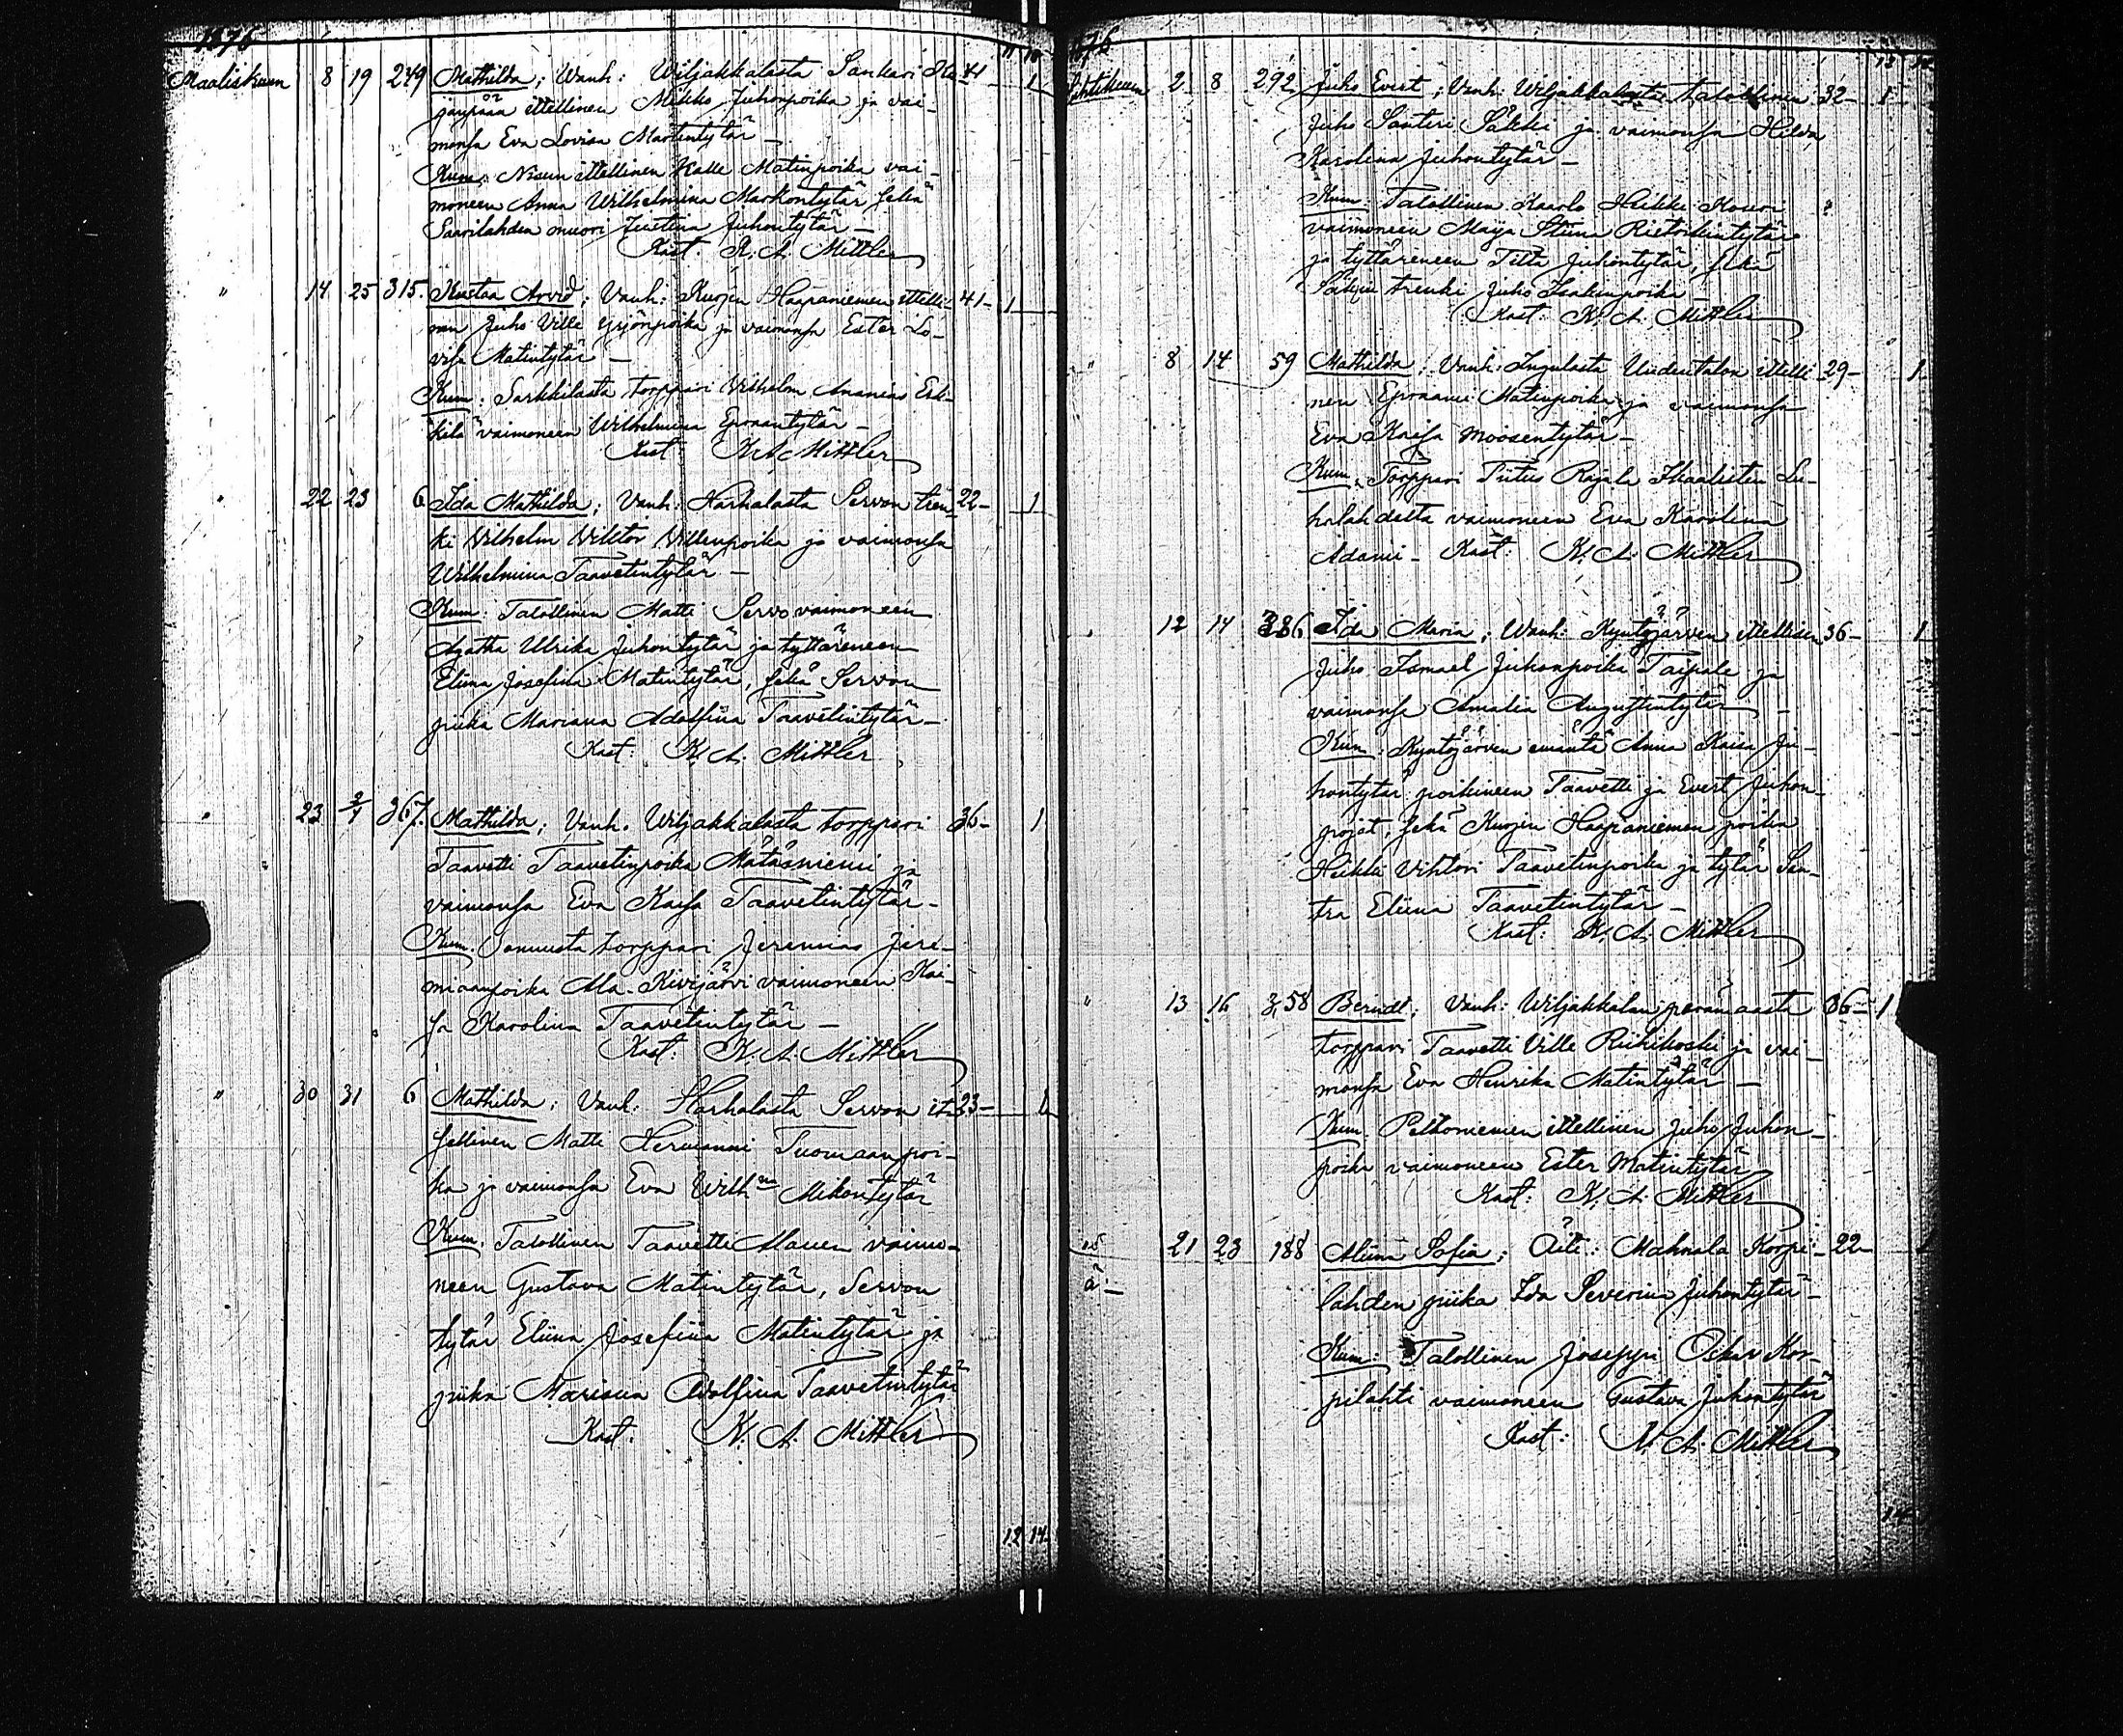 1876
11 10
Maaliskuun 8 19 249 Mathilda; Wanh: Wiljakkalasta Sankari 41 1
jänpään ittellinen Mikko Juhonpoika ja vai-
monsa Eva Lovisa Martintytär –
Kum: Nisun ittellinen Kalle Matinpoika vai-
moneen Anna Wilhelmina Markontytär sekä
Saarilahden muori Justina Juhontytär –
Kast. K. A. Mittler
" 14 25 315. Kustaa Arvid; Vanh: Kuojen Haapaniemen ittelli- 41– 1
nen Juho Ville Yrjönpoika ja vaimonsa Ester Lo-
visa Matintytär –
Kum: Sarkkilasta torppari Vilhelm Ananias Esk-
kilä vaimoneen Wilhelmina Eproantytär –
Kast K A Mittler
" 22 23 6 Ida Mathilda; Vanh: Harhalasta Servon tren- 22– 1
ki Vilhelm Viktor Villenpoika ja vaimonsa
Wilhelmina Taavetintytär –
Kum: Talollinen Matti Servo vaimoneen
Agatha Ulrika Juhontytär ja tyttäreneen
Eliina Josefina Matintytär, sekä Servon
piika Mariana Adolfina Taavetintytär –
Kast. K. A. Mittler
" 23 2/4 367. Mathilda; Vanh. Wiljakkalasta torppari 36– 1
Taavetti Taavetinpoika Mätäsniemi ja
vaimonsa Eva Kaisa Taavetintytär –
Kum. torppari Jeremias Jere-
miaanpoika Ala-Kivijärvi vaimoneen Kai-
sa Karolina Taavetintytär –
Kast: K. A. Mittler
" 30 31 6 Mathilda; Vanh: Harhalasta Servon it- 23– 1
sellinen Matti Hermanni Tuomaanpoi-
ka ja vaimonsa Eva Wilhna Mikontytär
Kum. Talollinen Taavetti Alanen vaimo-
neen Gustava Matintytär, Servon
tytär Eliina Josefiina Matintytär ja
piika Mariana Adolfina Taavetintytär
Kast. K. A. Mittler
12 14
1876
13 14
Huhtikuun 2 8 292 Juho Evert; Vanh: Wiljakkalasta talollinen 32– 1
Juho Santeri Säkki ja vaimonsa Hilda
Karolina Juhontytär –
Kum: Talollinen Kaarlo Heikki Kouvi
vaimoneen Maija Stiina Rietrikintytär
ja tyttäreneen Tilta Juhontytär, sekä
Säkin trenki Juho Isakinpoika
Kast: K. A. Mittler
" 8 14 59 Mathilda; Vanh: Inkulasta Uudentalon ittelli- 29– 1
nen Eproami Matinpoika ja vaimonsa
Eva Kaisa Moosentytär –
Kum. Torppari Tiitus Rajala Ikaalisten Lu-
halahdelta vaimoneen Eva Karolina
Adami – Kast: K. A. Mittler
" 12 14 386 Ida Maria; Wanh: Kyntöjärven ittellisen 36– 1
Juho Ismael Juhonpoika Taipale ja
vaimonsa Amalia Augustintytär –
Kum: Kyntöjärven emäntä Anna Kaisa Ju-
hontytär poikineen Taavetti ja Evert Juhon-
pojat, sekä Kuojen Haapaniemen poika
Heikki Vihtori Taavetinpoika ja tytär San-
tra Eliina Taavetintytär –
Kast: K. A. Mittler
" 13 16 358 Berndt; Vanh: Wiljakkalan perämaasta 36– 1
torppari Taavetti Ville Riihikoski ja vai-
monsa Eva Henrika Matintytär –
Kum. Peltoniemen ittellinen Juho Juhon-
poika vaimoneen Ester Matintytär
Kast: K. A. Mittler
21 23 188 Aliina Sofia; Äiti: Mahnala Korpi- 22– 1
ä–
lahden piika Ida Severina Juhontytär –
Kum: Talollinen Joseppi Oskar Kor-
pilahti vaimoneen Gustava Juhontytär
Kast: K. A. Mittler
14